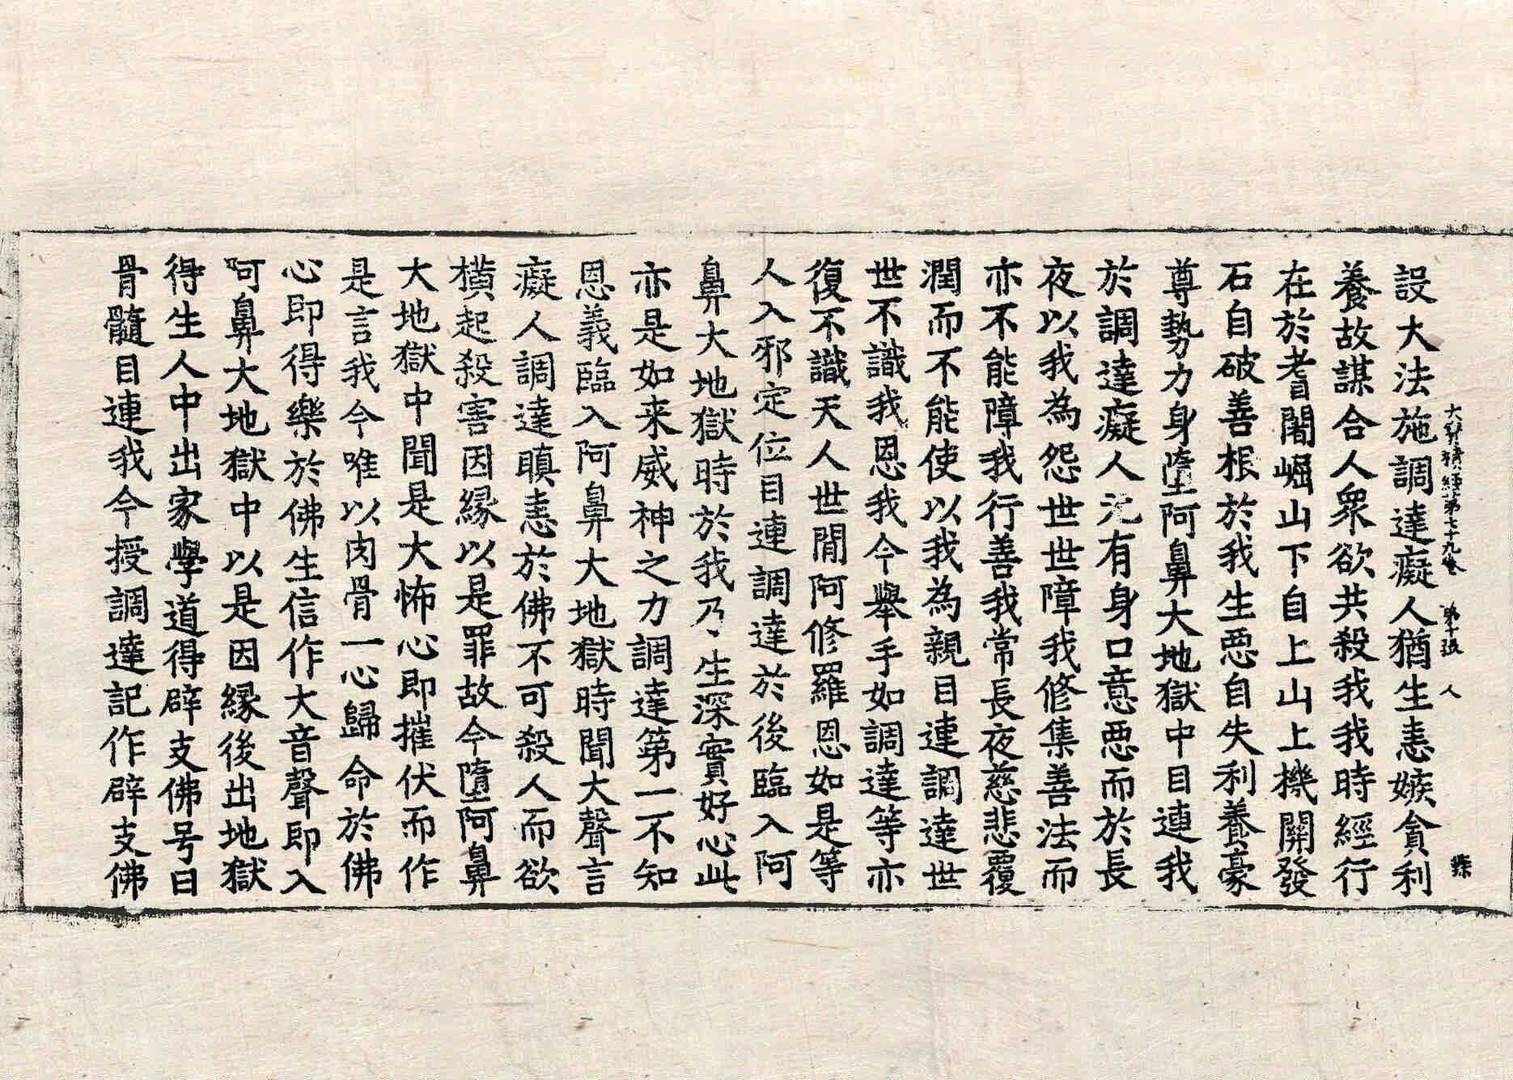 大集經第七十九卷 第十張 人
設大法施調達癡人猶生恚嫉貪利
養故謀合人衆欲共殺我我時經行
在於耆闍崛山下自上山上機關發
石自破善根於我生惡自失利養豪
尊勢力身墮阿鼻大地獄中目連我
於調達癡人元有身口意惡而於長
夜以我為怨世世障我修集善法而
亦不能障我行善我常長夜慈悲覆
潤而不能使以我為親目連調達世
世不識我恩我今舉手如調達等亦
復不識天人世閒阿修羅恩如是等
人入邪定位目連調達於後臨入阿
鼻大地獄時於我乃生深實好心此
亦是如来威神之力調達第一不知
恩義臨入阿鼻大地獄時聞大聲言
癡人調達瞋恚於佛不可殺人而欲
橫起殺害因縁以是罪故今墮阿鼻
大地獄中聞是大怖心即摧伏而作
是言我今唯以肉骨一心歸命於佛
心即得樂於佛生信作大音聲即入
阿鼻大地獄中以是因縁後出地獄
得生人中出家學道得辟支佛号曰
骨髓目連我今授調達記作辟支佛